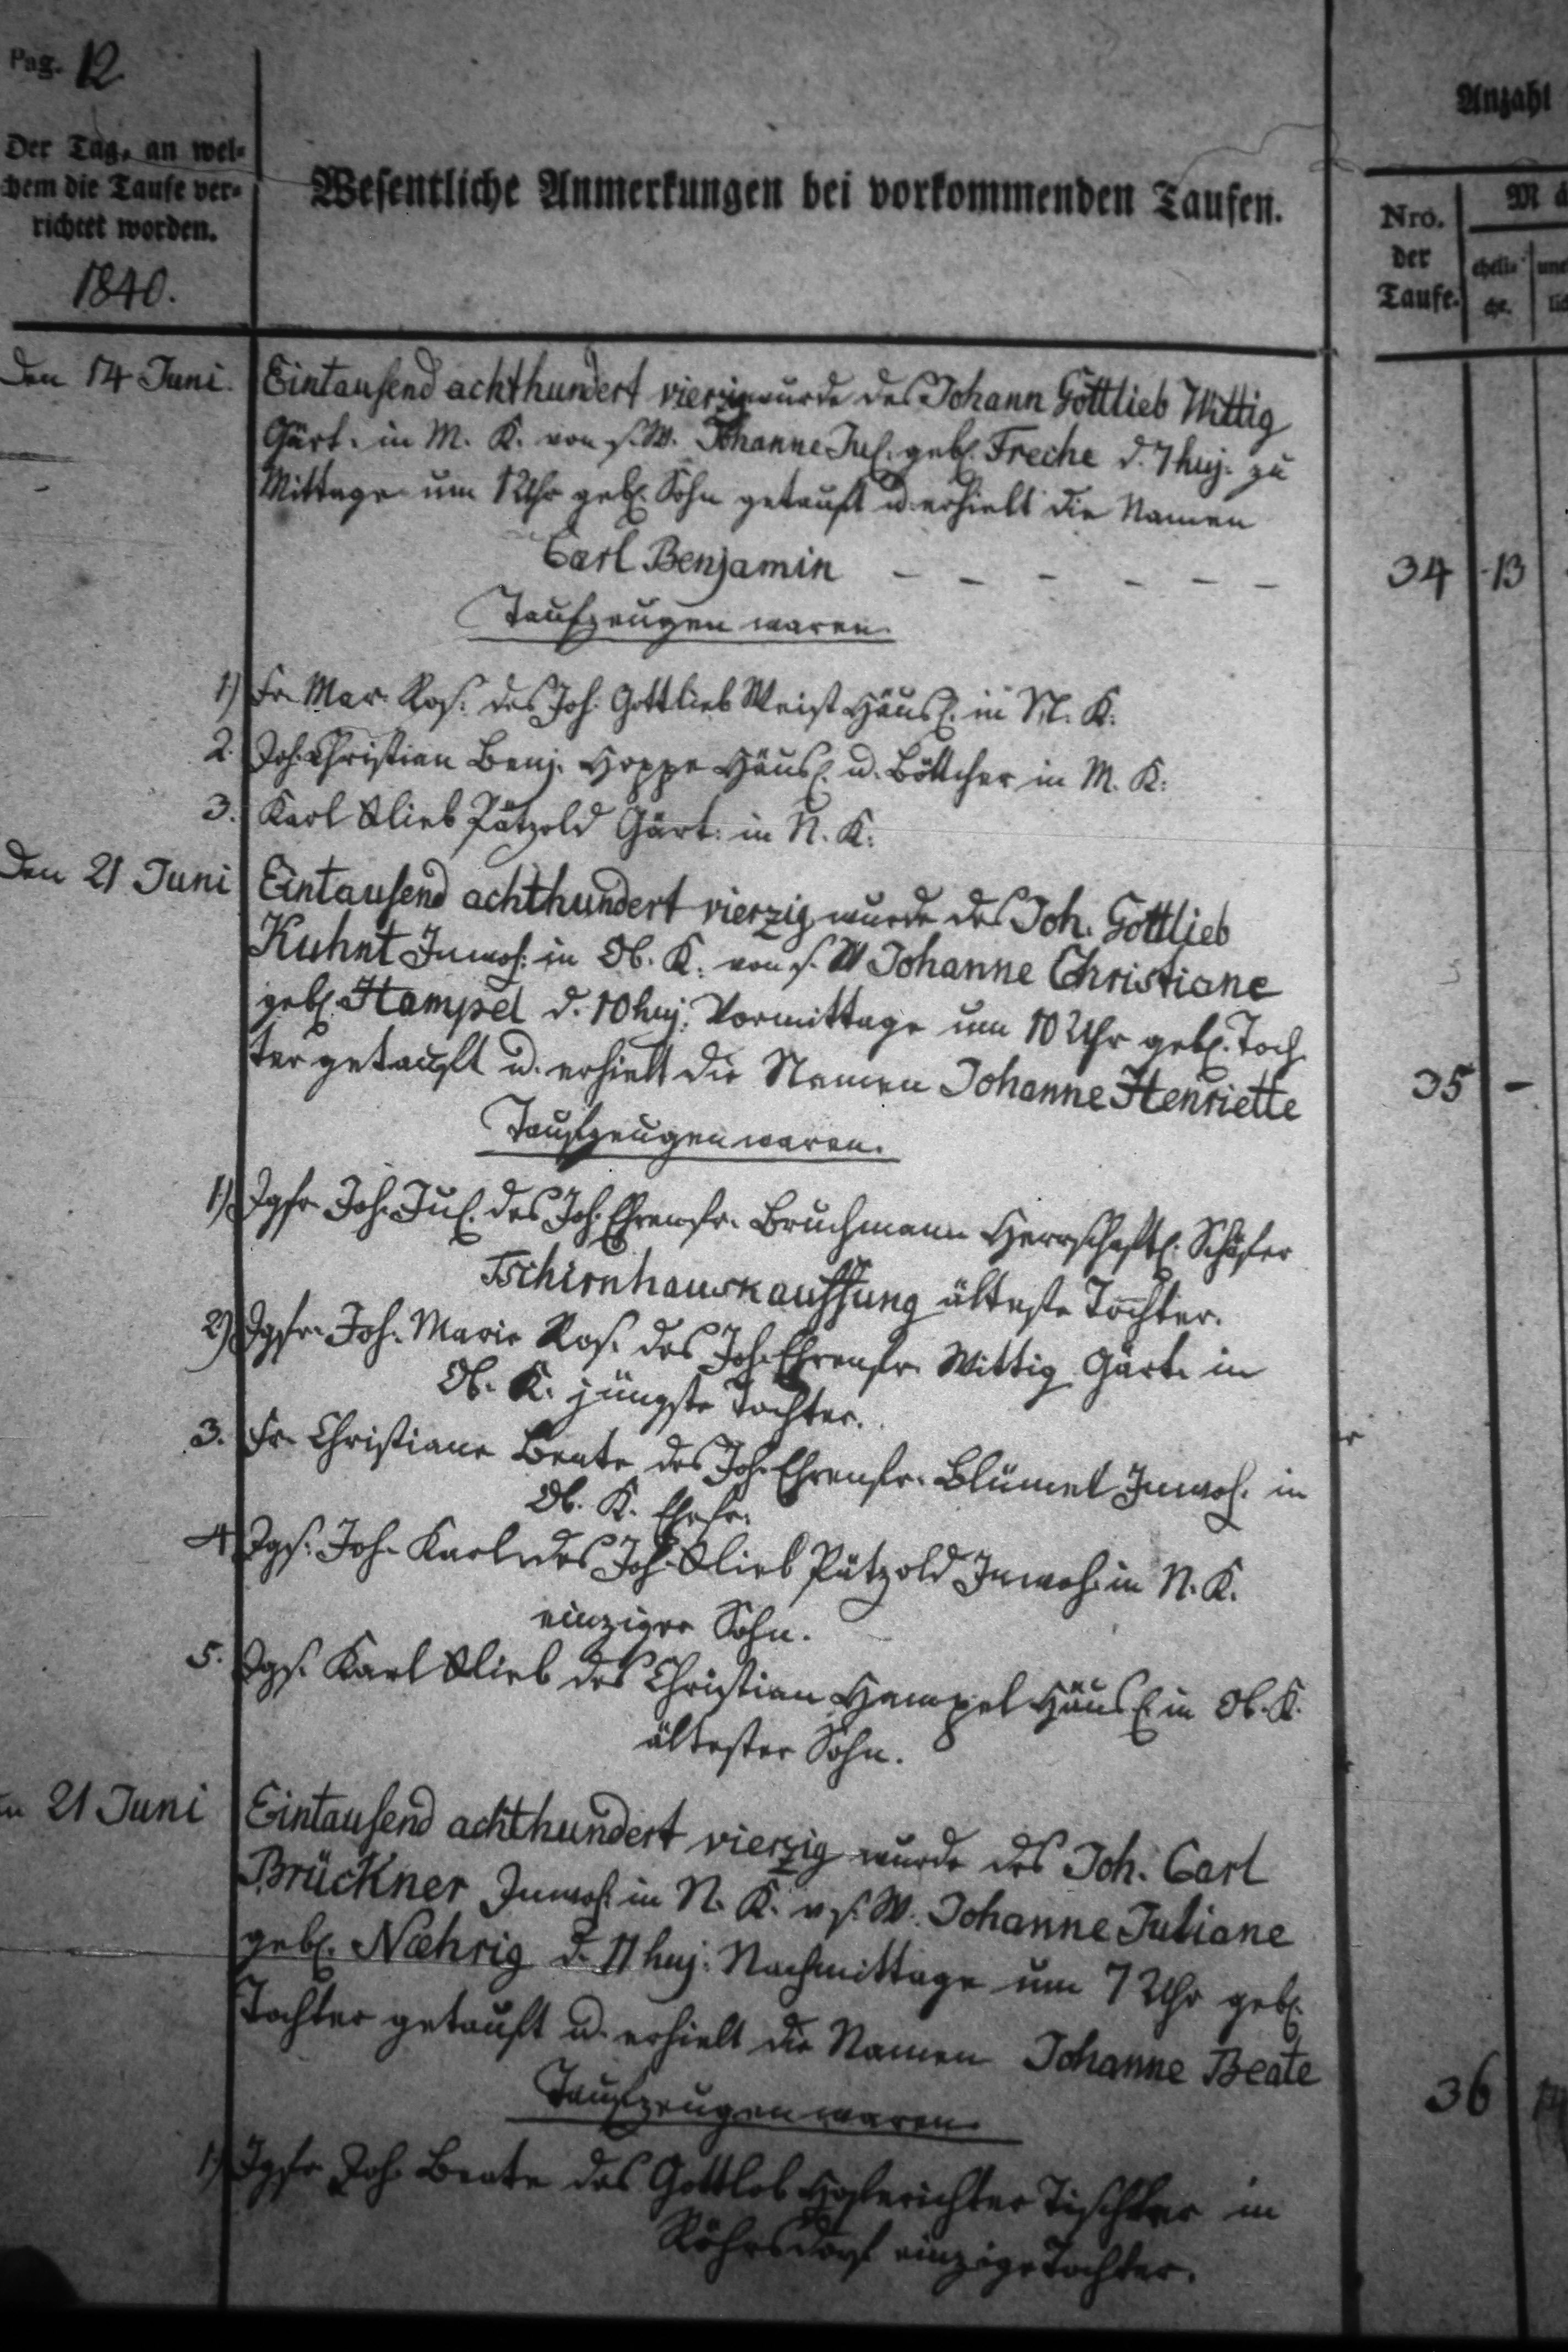 Pag. 12
Anzahl
Der Tag, an wel-
chem die Taufe ver-
richtet worden.
1840.
Wesentliche Anmerkungen bei vorkommenden Taufen.
Nro.
der
Taufe.
eheli-
che.
Den 14 Juni.
Eintausend achthundert vierzig wurde des Johann Gottlieb Wittig
Gärt. in M. K. von s. W. Johanne Jul. geb. Freche d. 7 huj. zu
Mittage um 1 Uhr geb. Sohn getauft u. erhielt die Namen
Carl Benjamin - - - - - -
34 13
Taufzeugen waren.
1) Fr. Mar. Ros. des Joh. Gottlieb Weist Häusl. in M. K.
2. Joh. Christian Benj. Hoppe Häusl. u. Böttcher in M. K.
3. Karl Glieb Pätzold Gärt. in N. K.
Den 21 Juni
Eintausend achthundert vierzig wurde des Joh. Gottlieb
Kuhnt Inwoh. in Ob. K. von s. W Johanne Christiane
geb. Hampel d. 10 huj. Vormittage um 10 Uhr geb. Toch
ter getauft u. erhielt die Namen Johanne Henriette
35 -
Taufzeugen waren.
1) Jgfr. Joh. Jul. des Joh. Ehrenfr. Bruchmann Herrschaftl. Schäfer
Tschirnhauskauffung älteste Tochter.
2) Jgfr. Joh. Marie Ros. des Joh. Ehrenfr. Wittig Gärt. in
Ob. K. jüngste Tochter.
3. Fr. Christiane Beate des Joh. Ehrenfr. Blümel Inwoh. in
Ob. K. Ehefr.
4 Jgs. Joh. Karl des Joh. Glieb Pätzold Inwoh. in N. K.
einziger Sohn.
5. Jgs. Karl Glieb des Christian Hampel Häusl. in Ob. K.
ältester Sohn.
21 Juni
Eintausend achthundert vierzig wurde des Joh. Carl
Brückner Inwoh. in N. K. v. s. W. Johanne Juliane
geb. Næhrig d. 11 huj. Nachmittage um 7 Uhr geb.
Tochter getauft u. erhielt die Namen Johanne Beate
36
Taufzeugen waren.
1) Jgfr. Joh. Beate des Gottlob Hofferichter Tischler in
Röhrsdorf einzige Tochter.